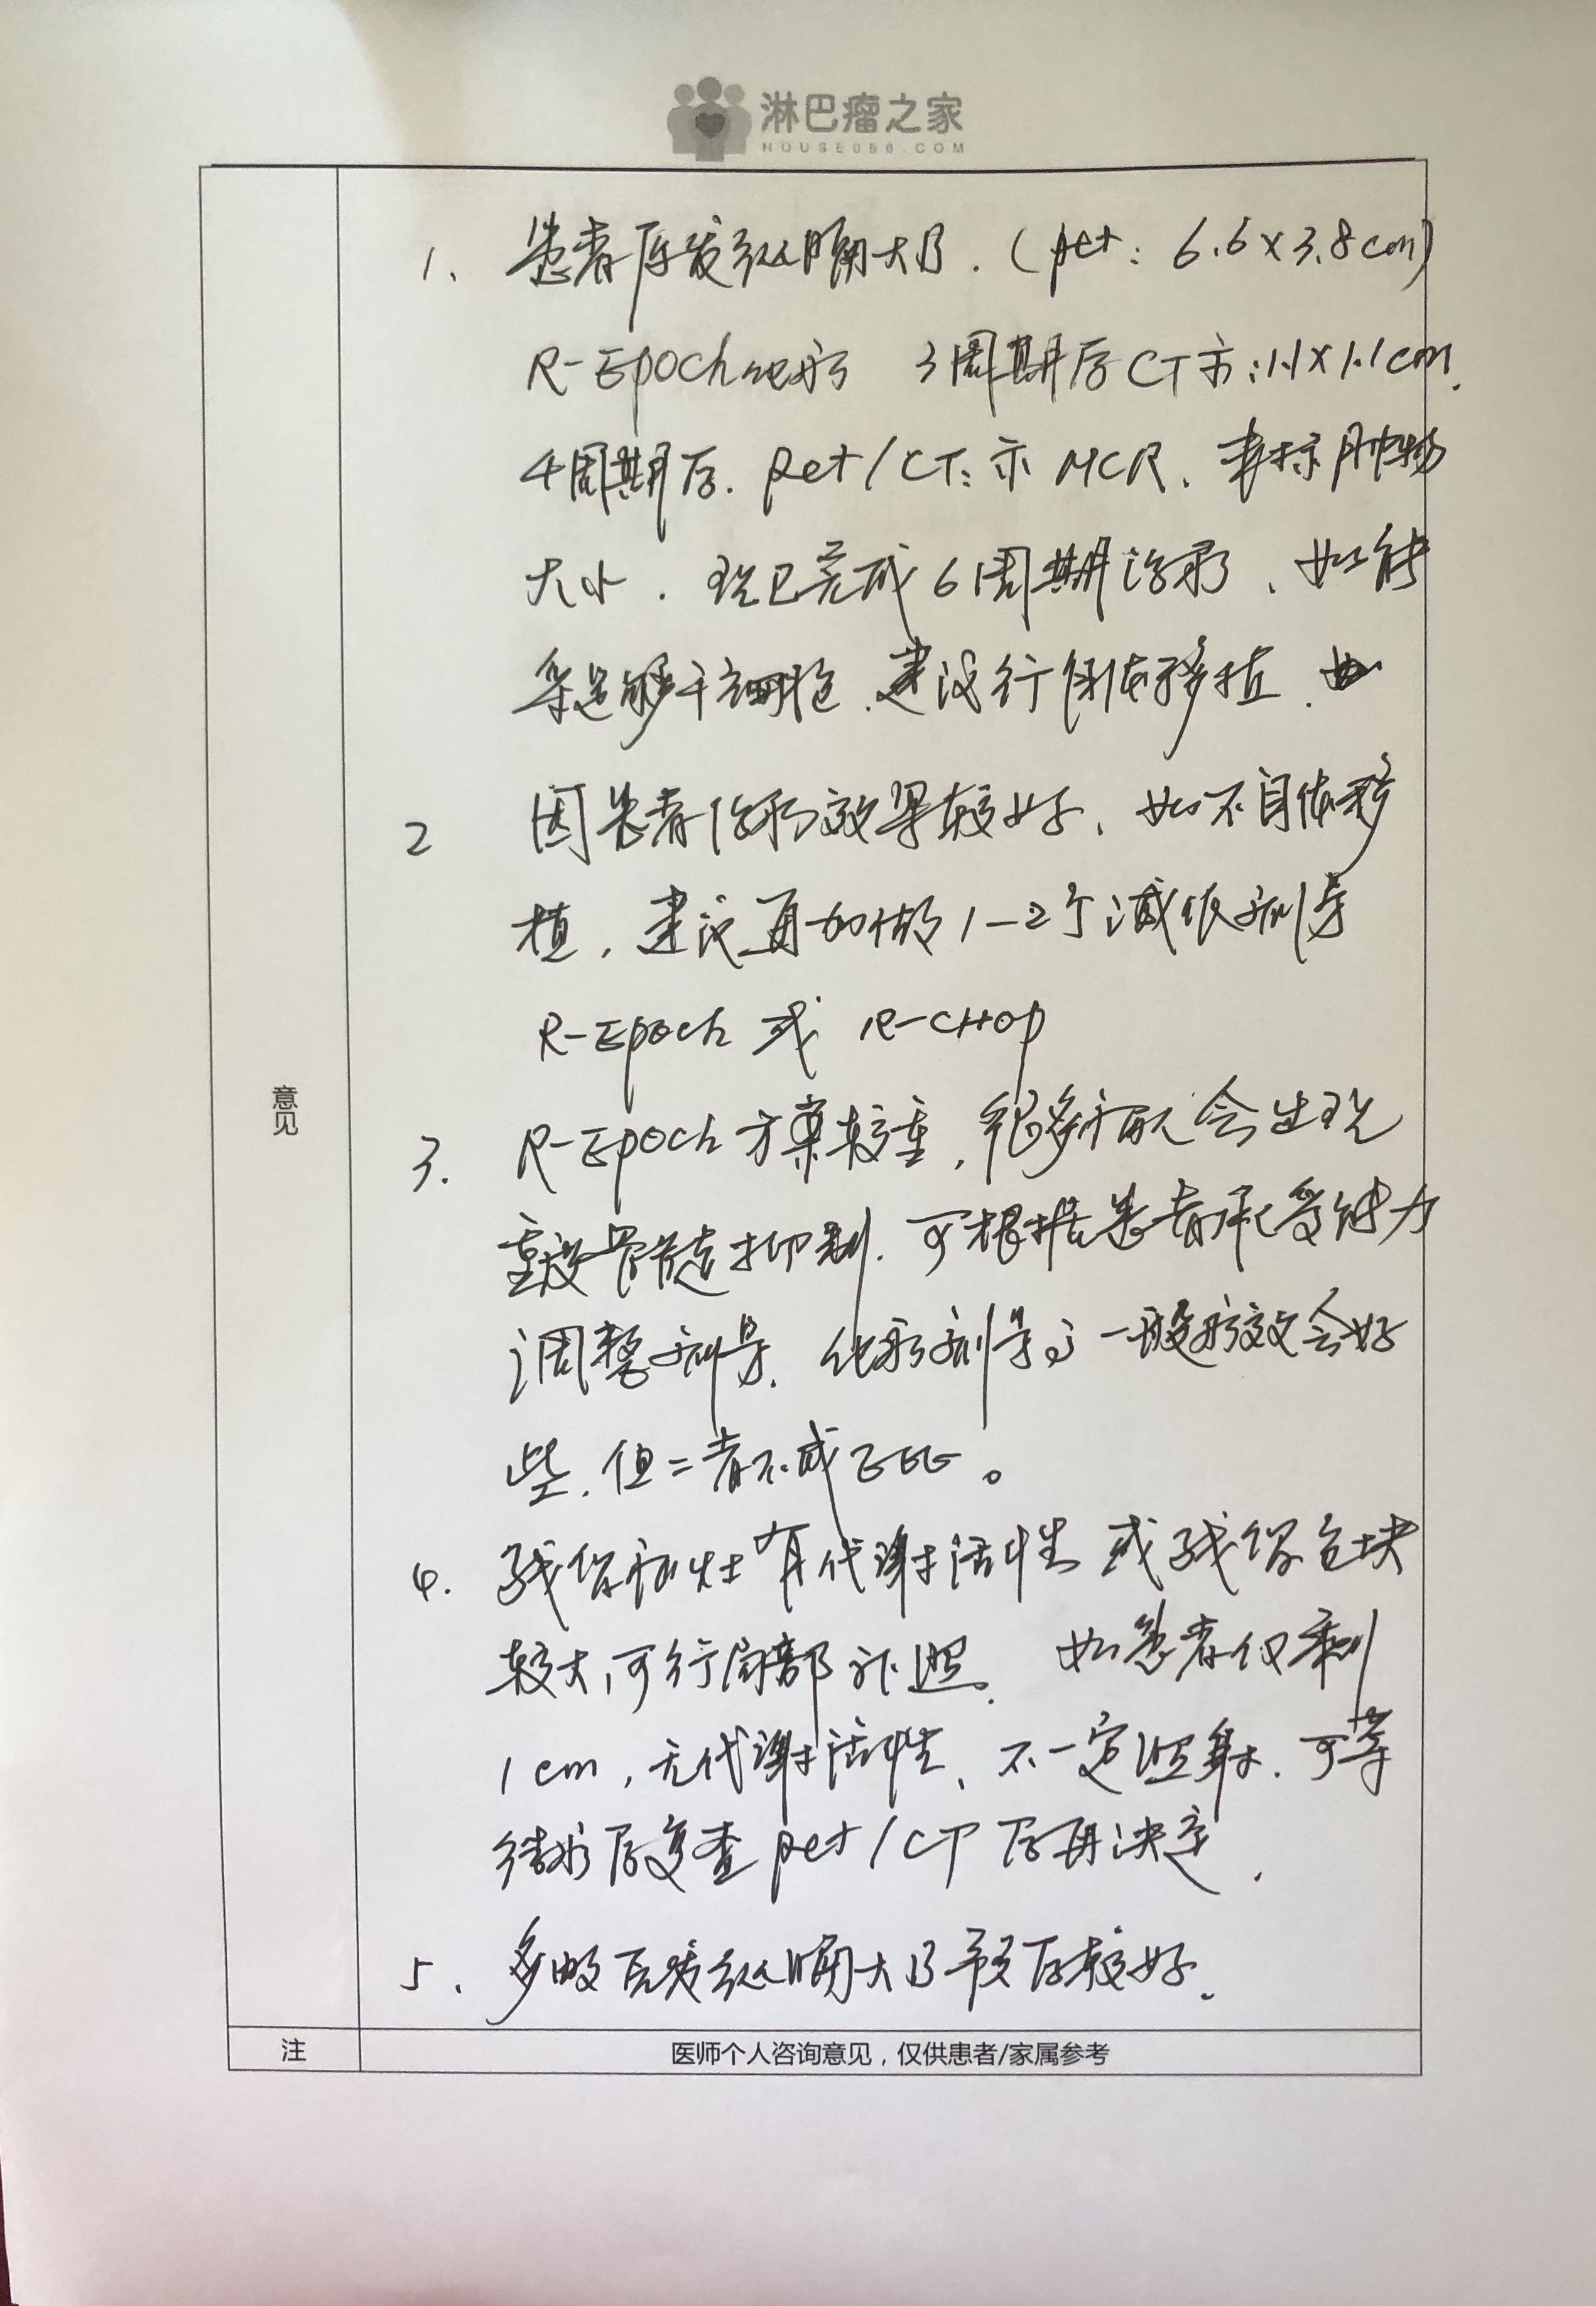 淋巴瘤之家
HOUSE086.COM
1、患者原发纵隔大B.（pet：6.6×3.8cm）
R-Epoch化疗 3周期后CT示：1.1×1.1cm.
4周期后.pet/CT：示MCR、未标肿物
大小.现已完成6周期治疗、如能
采足够干细胞.建议行自体移植.
2 因患者治疗效果较好、如不自体移
植，建议再加做1-2个减低剂量
R-Epoch 或 R-CHOP
3. R-Epoch方案较重，很多病人会出现
重度骨髓抑制.可根据患者承受能力
调整剂量.化疗剂量高一般疗效会好
些.但二者不成正比。
4. 残留病灶有代谢活性或残留包块
较大，可行局部补照.如患者仅剩
1cm，无代谢活性、不一定照射.可等
结疗后复查pet/CT后再决定.
5、多数原发纵隔大B预后较好.
意见
注 医师个人咨询意见，仅供患者/家属参考